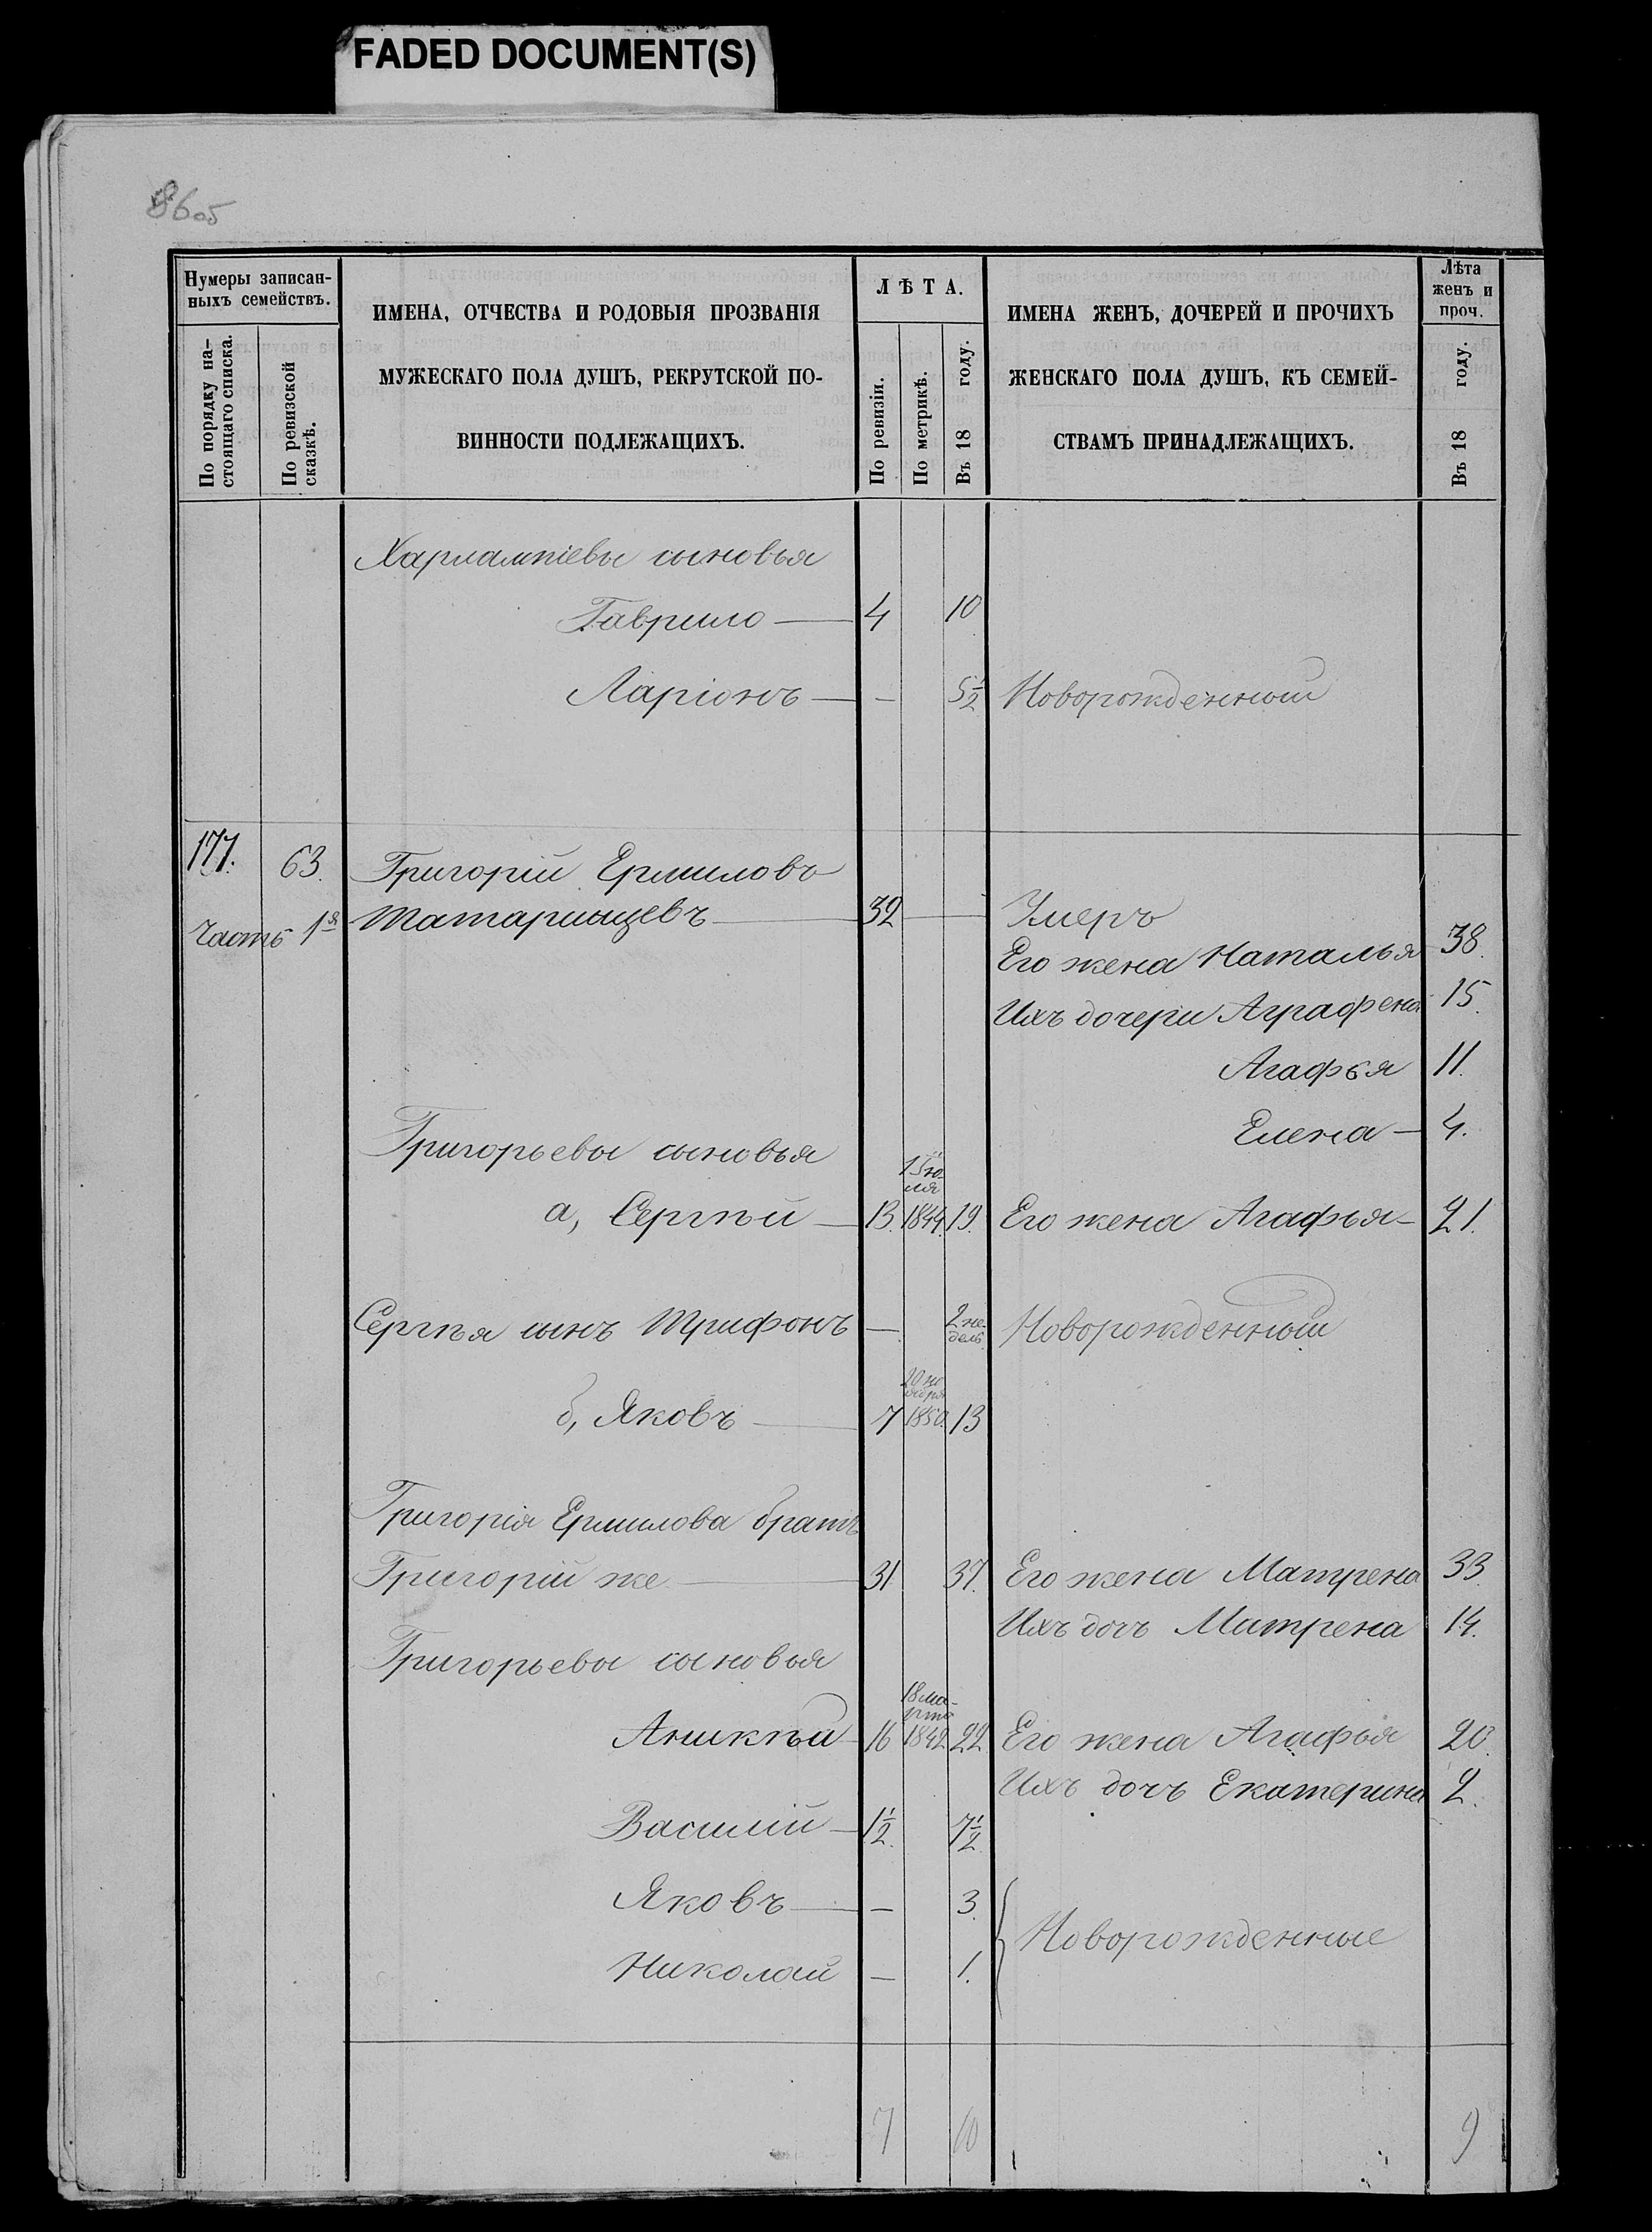 FADED DOCUMENT(S)
86об
Нумеры записан-
ныхъ семействъ.
По порядку на-
стоящаго списка.
По ревизской
сказкѣ.
ИМЕНА, ОТЧЕСТВА И РОДОВЫЯ ПРОЗВАНІЯ
МУЖЕСКАГО ПОЛА ДУШЪ, РЕКРУТСКОЙ ПО-
ВИННОСТИ ПОДЛЕЖАЩИХЪ.
ЛѢТА.
По ревизіи.
По метрикѣ.
Въ 18 году.
ИМЕНА ЖЕНЪ, ДОЧЕРЕЙ И ПРОЧИХЪ
ЖЕНСКАГО ПОЛА ДУШЪ, КЪ СЕМЕЙ-
СТВАМЪ ПРИНАДЛЕЖАЩИХЪ.
Лѣта
женъ и
проч.
Въ 18 году.
Харлампіевы сыновья
Гаврило — 4 10
Ларіонъ — — 5½ Новорожденный
177. 63. Григорій Ермиловъ
Часть 1я Татарынцевъ — 32 — Умеръ
Его жена Наталья 38.
Ихъ дочери Аграфена 15.
Агафья 11.
Елена — 4.
Григорьевы сыновья
15 ю-
ля
а, Сергѣй — 13. 1844. 19. Его жена Агафья — 21.
Сергѣя сынъ Трифонъ — 2 не-
дель. Новорожденный
20 но
ября
б, Яковъ — 7 1850. 13
Григорія Ермилова братъ
Григорій же — 31 37. Его жена Матрена 33.
Ихъ дочь Матрена 14.
Григорьевы сыновья
18 ма-
рта
Аникѣй — 16 1842 22 Его жена Агафья 20.
Ихъ дочь Екатерина 2.
Василій — 1½ 7½
Яковъ — — 3.
Новорожденные
Николай — 1.
7 10 9